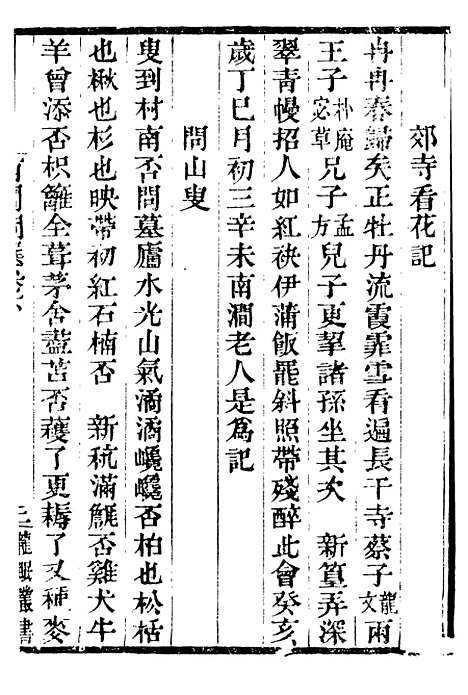 郊寺看花記
冉冉春歸矣正牡丹流霞霏雪看遍長干寺蔡子龍文雨
王子朴庵宓草兄子孟方兒子更挈諸孫坐其次　新篁弄深
翠青幔招人如紅袂伊蒲飯罷斜照帶殘醉此會癸亥
歲丁巳月初三辛未南澗老人是爲記
問山叟
叟到村南否問墓廬水光山氣滴滴巉巉否柏也松栝
也楸也杉也映帶初紅石楠否　新秔滿甒否雞犬牛
羊曾添否枳籬全葺茅舍蓋苫否穫了更耨了又種麥
龍眠叢書